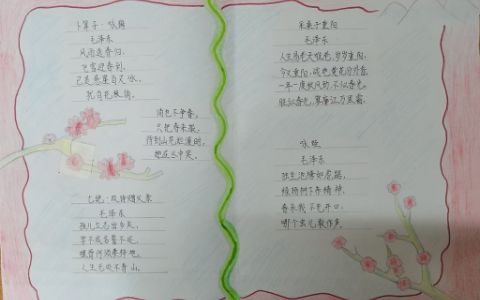 卜算子·咏梅
毛泽东
风雨送春归，
飞雪迎春到。
已是悬崖百丈冰，
犹有花枝俏。
俏也不争春，
只把春来报。
待到山花烂漫时，
她在丛中笑。
七绝·改诗赠父亲
毛泽东
孩儿立志出乡关，
学不成名誓不还。
埋骨何须桑梓地，
人生无处不青山。
采桑子重阳
毛泽东
人生易老天难老，岁岁重阳。
今又重阳，战地黄花分外香。
一年一度秋风劲，不似春光。
胜似春光，寥廓江万里霜。
咏蛙
毛泽东
独坐池塘如虎踞，
绿荫树下养精神。
春来我不先开口，
哪个虫儿敢作声。